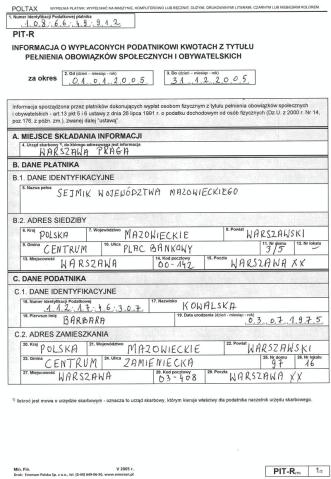 POLTAX
WYPEŁNIA PŁATNIK. WYPEŁNIAĆ NA MASZYNIE, KOMPUTEROWO LUB RĘCZNIE, DUŻYMI, DRUKOWANYMI LITERAMI, CZARNYM LUB NIEBIESKIM KOLOREM.
1. Numer Identyfikacji Podatkowej płatnika
PIT-R
INFORMACJA O WYPŁACONYCH PODATNIKOWI KWOTACH Z TYTUŁU
PEŁNIENIA OBOWIĄZKÓW SPOŁECZNYCH I OBYWATELSKICH
za okres
2. Od (dzień - miesiąc - rok)
01.01.2005
3. Do (dzień - miesiąc - rok)
31.12.2005
Informacja sporządzona przez płatników dokonujących wypłat osobom fizycznym z tytułu pełnienia obowiązków społecznych
i obywatelskich - art.13 pkt 5 i 6 ustawy z dnia 26 lipca 1991 r. o podatku dochodowym od osób fizycznych (Dz.U. z 2000 r. Nr 14,
poz.176, z późn. zm.), zwanej dalej "ustawą".
A. MIEJSCE SKŁADANIA INFORMACJI
4. Urząd skarbowy *), do którego adresowana jest informacja
WARSZAWA PRAGA
B. DANE PŁATNIKA
B.1. DANE IDENTYFIKACYJNE
5. Nazwa pełna
SEJMIK WOJEWÓDZTWA MAZOWIECKIEGO
B.2. ADRES SIEDZIBY
6. Kraj 7. Województwo 8. Powiat
POLSKA MAZOWIECKIE WARSZAWSKI
9. Gmina 10. Ulica 11. Nr domu 12. Nr lokalu
CENTRUM PLAC BANKOWY 3/5
13. Miejscowość 14. Kod pocztowy 15. Poczta
WARSZAWA 00-142 WARSZAWA XX
C. DANE PODATNIKA
C.1. DANE IDENTYFIKACYJNE
16. Numer Identyfikacji Podatkowej 17. Nazwisko
KOWALSKA
18. Pierwsze imię 19. Data urodzenia (dzień - miesiąc - rok)
BARBARA 03.07.1975
C.2. ADRES ZAMIESZKANIA
20. Kraj 21. Województwo 22. Powiat
POLSKA MAZOWIECKIE WARSZAWSKI
23. Gmina 24. Ulica 25. Nr domu 26. Nr lokalu
CENTRUM ZAMIENIECKA 97 16
27. Miejscowość 28. Kod pocztowy 29. Poczta
WARSZAWA 03-408 WARSZAWA XX
*) Ilekroć jest mowa o urzędzie skarbowym - oznacza to urząd skarbowy, którym kieruje właściwy dla podatnika naczelnik urzędu skarbowego.
Min. Fin.
V 2005 r.
PIT-R